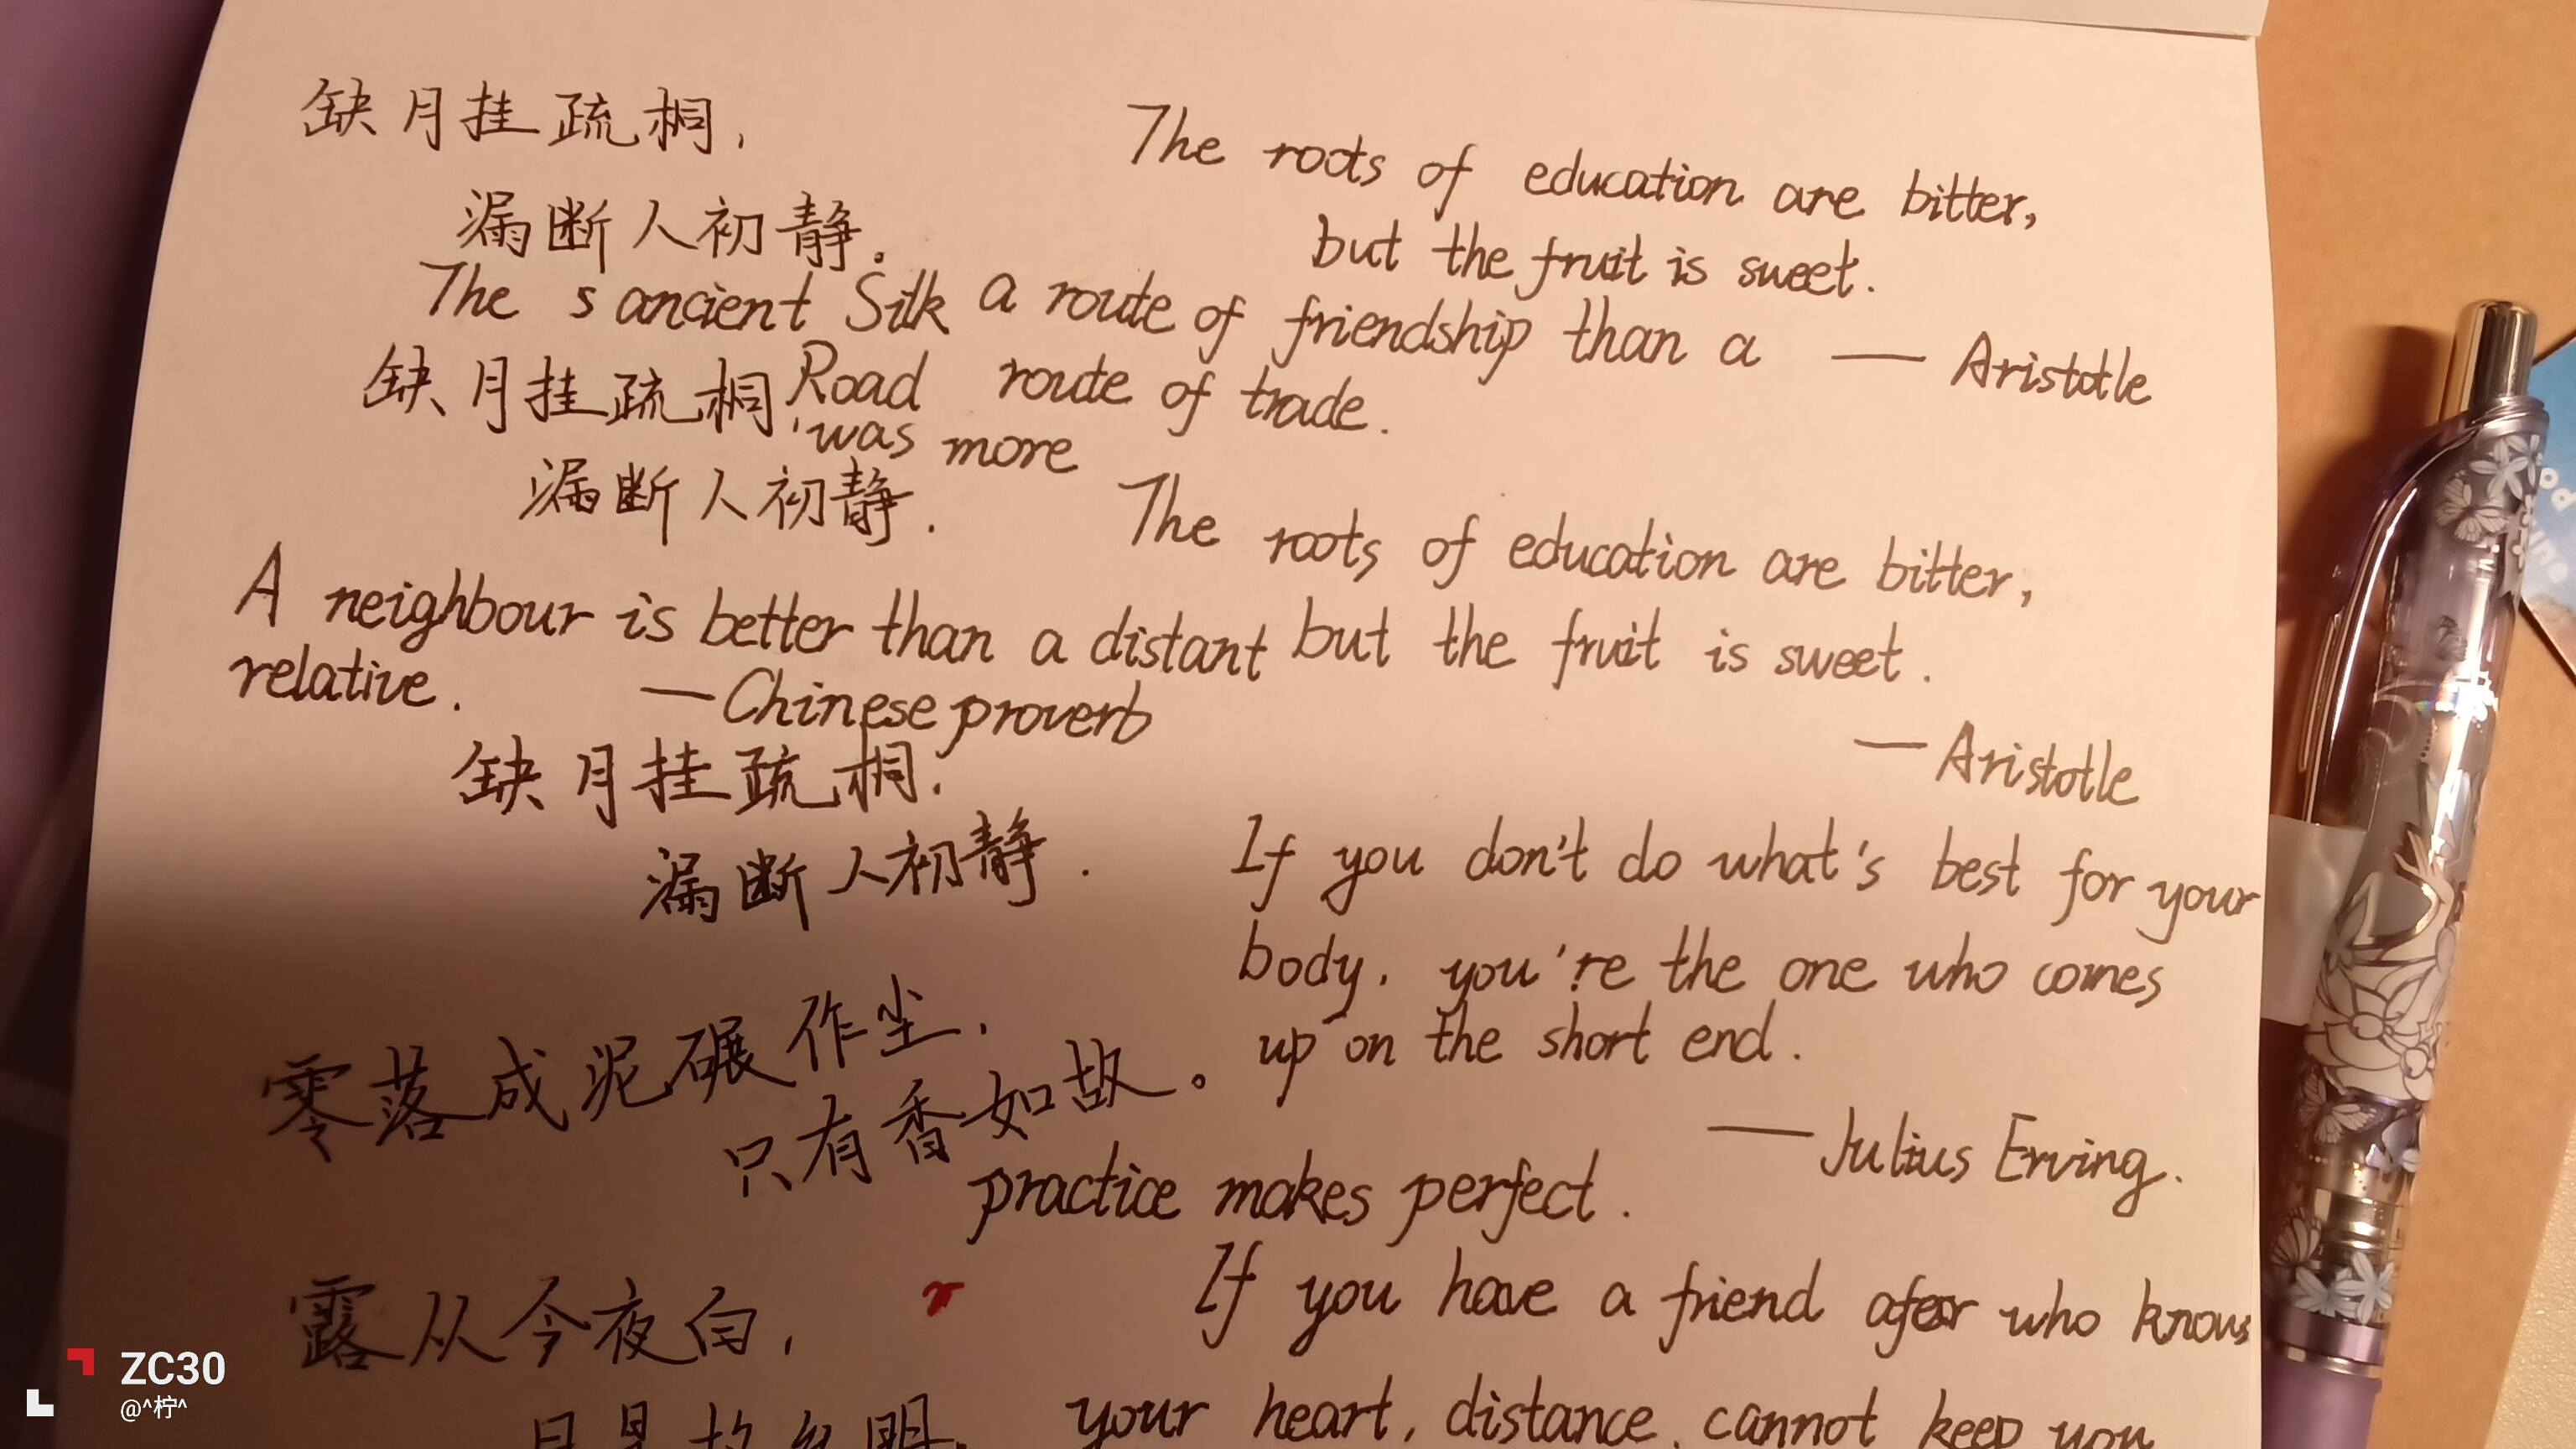 缺月挂疏桐，
漏断人初静。
The roots of education are bitter,
but the fruit is sweet.
— Aristotle
The s ancient Silk
Road
was more
a route of friendship than a
route of trade.
缺月挂疏桐，
漏断人初静.
The roots of education are bitter,
but the fruit is sweet.
— Aristotle
A neighbour is better than a distant
relative.
— Chinese proverb
缺月挂疏桐.
漏断人初静.
If you don't do what's best for your
body, you're the one who comes
up on the short end.
— Julius Erving.
零落成泥碾作尘,
只有香如故。
practice makes perfect.
If you have a friend afear who knows
your heart, distance cannot keep you
露从今夜白,
月是故乡明。
ZC30
@^柠^